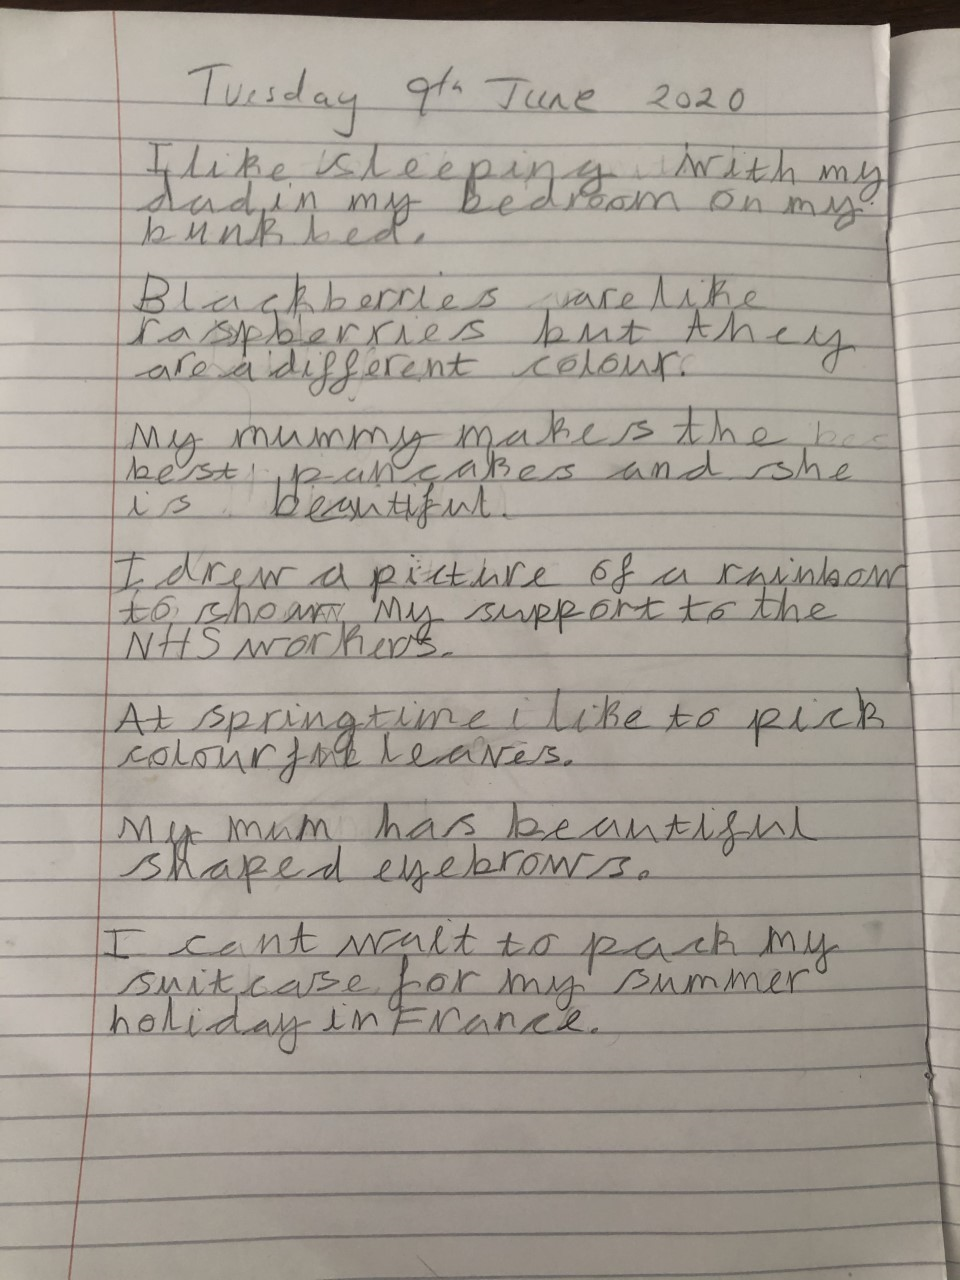 Tuesday 9th June 2020
I like sleeping with my
dad in my bedroom on my
bunk bed.
Blackberries are like
raspberries but they
are a different colour.
My mummy makes the
best pancakes and she
is beautiful.
I drew a picture of a rainbow
to show my support to the
NHS workers.
At springtime i like to pick
colourful leaves.
My mum has beautiful
shaped eyebrows.
I cant wait to pack my
suitcase for my summer
holiday in France.